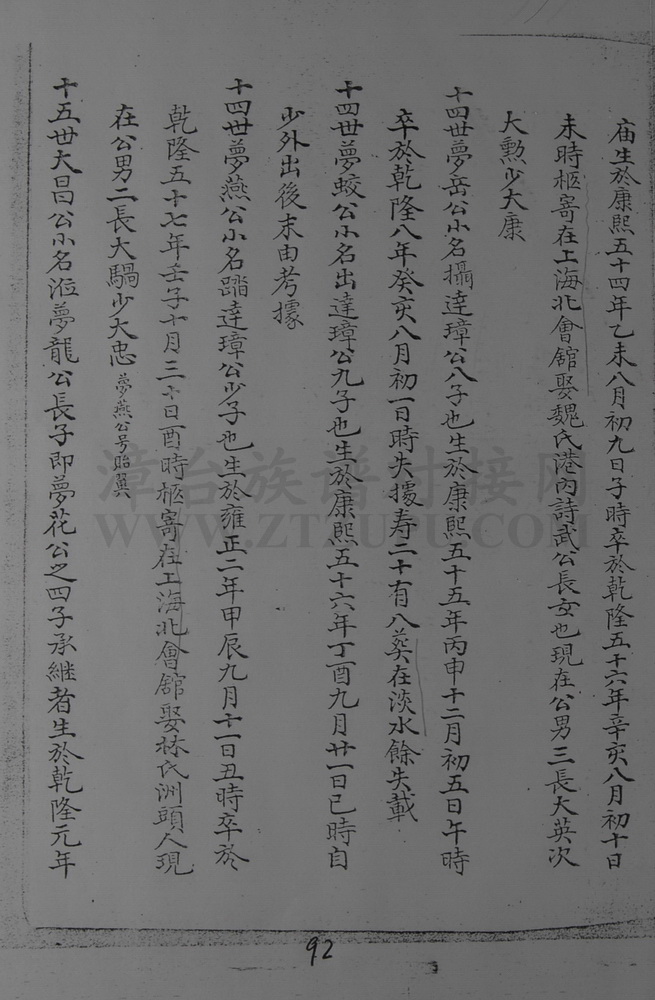 庙生於康熙五十四年乙未八月初九日子時卒於乾隆五十六年辛亥八月初十日
未時柩寄在上海北會舘娶魏氏港內詩武公長女也現在公男三長大英次
大勲少大康
十四世夢岳公小名攝達璋公八子也生於康熙五十五年丙申十二月初五日午時
卒於乾隆八年癸亥八月初一日時失據寿二十有八葬在淡水餘失載
十四世夢蛟公小名出達璋公九子也生於康熙五十六年丁酉九月廿一日巳時自
少外出後末由考據
十四世夢燕公小名踏達璋公少子也生於雍正二年甲辰九月十一日丑時卒於
乾隆五十七年壬子十月三十日酉時柩寄在上海北會舘娶林氏洲頭人現
在公男二長大騧少大忠 夢燕公号貽翼
十五世大昌公小名涖夢龍公長子即夢花公之四子承継者生於乾隆元年
漳台族谱对接网
WWW.ZTZUPU.COM
92